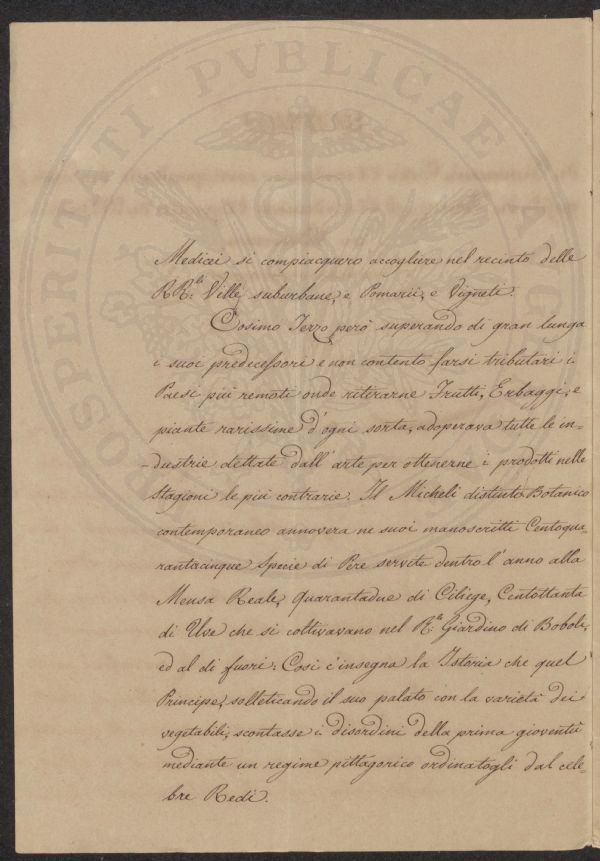 PROSPERITATI PVBLICAE AUG
Medicei si compiacquero accogliere nel recinto delle
RR.li Ville, suburbane, e Pomarii, e Vigneti.
Cosimo Terzo però superando di gran lunga
i suoi predecessori e non contento farsi tributari i
Paesi più remoti onde ritirarne Frutti, Erbaggi, e
piante rarissime d'ogni sorta, adoperava tutte le in-
-dustrie dettate dall'arte per ottenerne i prodotti nelle
stagioni le più contrarie. Il Micheli distinto Botanico
contemporaneo annovera ne suoi manoscritti Centoqua-
rantacinque specie di Pere servite dentro l'anno alla
Mensa Reale, Quarantadue di Ciliege, Centottanta
di Uve che si coltivavano nel R.le Giardino di Boboli,
ed al di fuori: Così c'insegna la Istoria che quel
Principe, solleticando il suo palato con la varietà dei
vegetabili, scontasse i disordini della prima gioventù
mediante un regime pittagorico ordinatogli dal cele-
bre Redi.